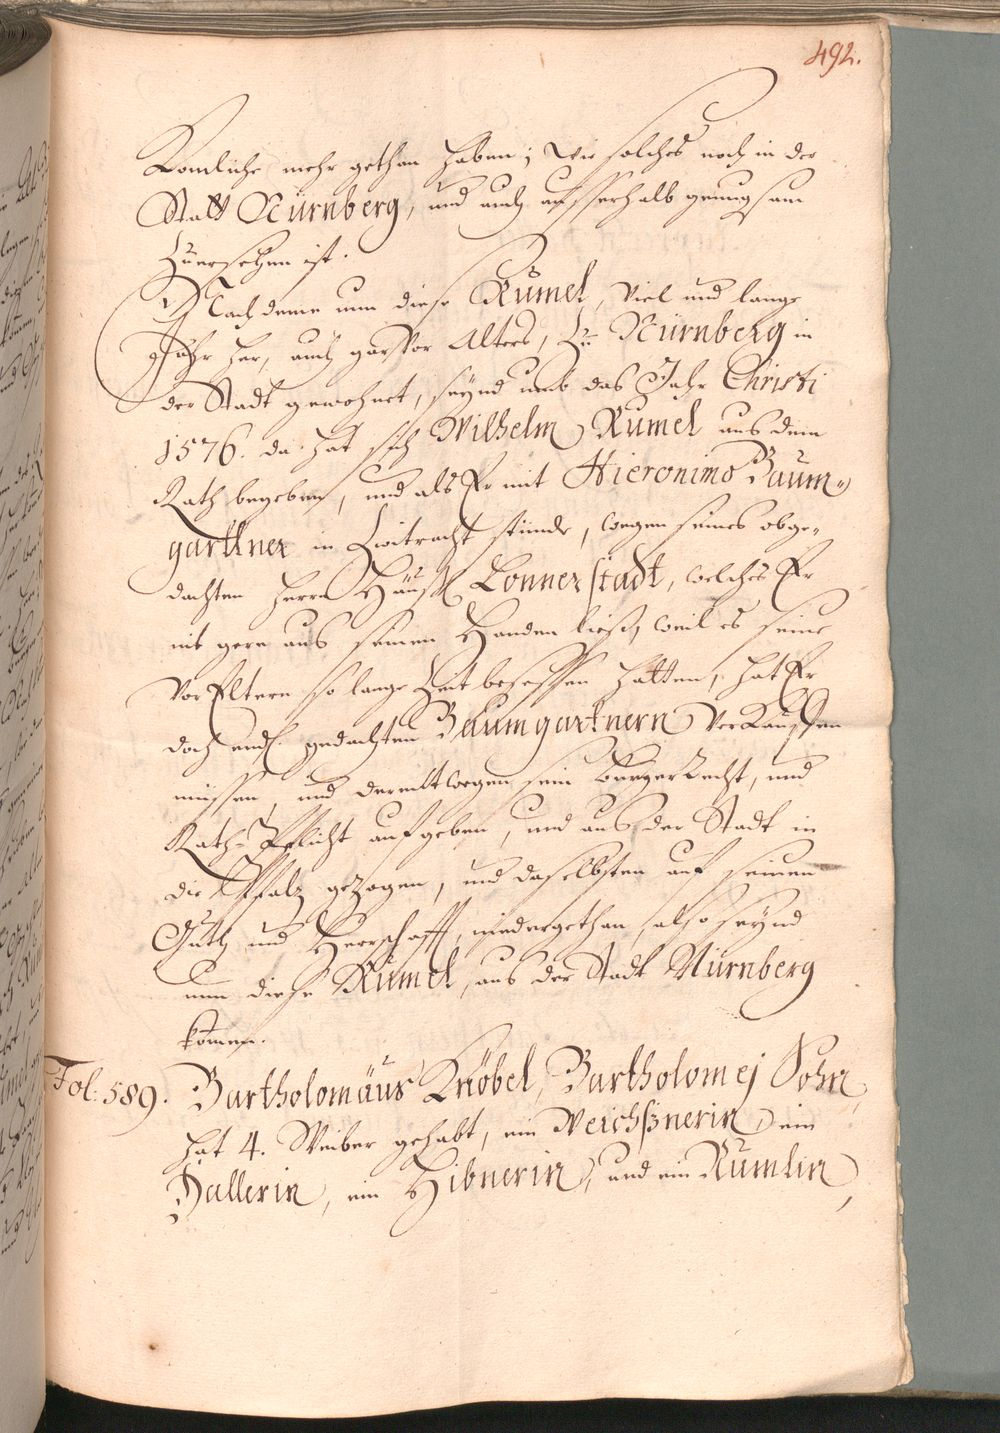 492.
Komliche mehr gethan haben; wie solches noch in der
Statt Nürnberg, und auch ausserhalb genugsam
Zuersehen ist.
Nach deme nun diese Rümel, Viel und lange
Jahr her, auch gar Vor Alters, Zu Nürnberg in
der Stadt gewohnet, seynd umb das Jahr Christi
1576. da hat sich Wilhelm Rumel aus dem
Rath begeben, und als Er mit Hieronimo Baum-
garttner in Zwitracht stünde, wegen seines obge-
dachten Herrn Hauß Lonnerstadt, welches Er
nit gern aus seinen Handen ließ, weil es seine
Vor Eltern so lange Zeit besessen hatten, hat Er
doch endl. gedachten Baumgartnern Verkauffen
müssen, und derentwegen sein Burger Recht, und
Rath-Pflicht aufgeben, und aus der Stadt in
die Pfalz gezogen, und daselbsten auf seinen
Guth und Herrschafft, niedergethan, also seynd
nun diese Rümel, aus der Stadt Nürnberg
komen.
Fol: 589. Bartholomäus Knöbel, Bartholomej Sohn,
hat 4. Weiber gehabt, ein Weichßnerin, ein
Hallerin, ein Hibnerin, und ein Rümlin,